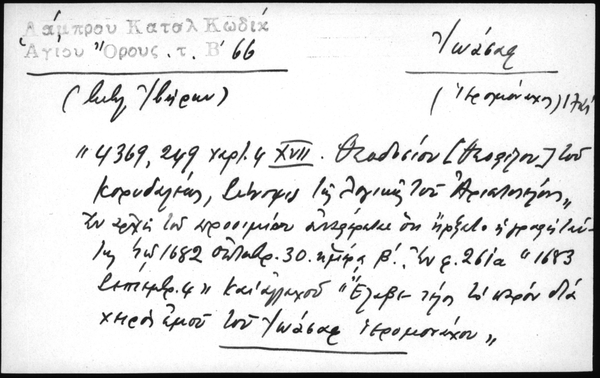 Λάμπρου Καταλ Κώδικ
Ἁγίου Ὄρους. τ. Β' 66
Ἰωάσαφ
(Μονὴ Ἰβήρων)
(Ἱερομόναχος)
"4369, 249 χαρτ. 4 XVII. Θεοδοσίου [Θεοφίλου] τοῦ
Κορυδαλέως, Σύνοψις τῆς Λογικῆς τοῦ Ἀριστοτέλους"
Ἐν ἀρχῇ τοῦ προοιμίου ὅτι ἤρξατο ἡ γραφὴ ταύ-
της 1682 Ὀκτωβρ. 30. ἡμέρᾳ β'. Ἐν φ. 261α "1683
Σεπτεμβρ. 4" Καὶ ἀλλαχοῦ "Ἔλαβε τέλος τὸ παρὸν διὰ
χειρὸς ἐμοῦ τοῦ Ἰωάσαφ ἱερομονάχου"